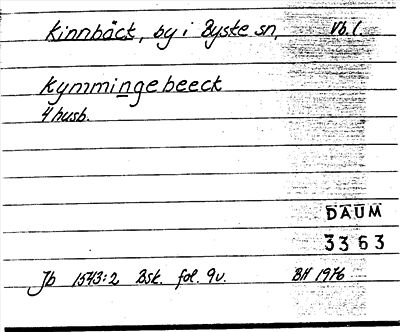 Kinnbäck, by i Byske sn, Vb. l.
Kymmingebeeck
4 husb.
DAUM
3363
Jb 1543:2 Bsk. fol. 9v. BH 1976